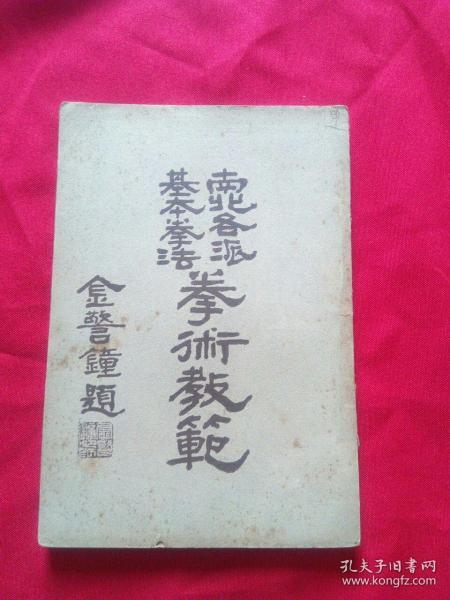 南北各派
基本拳法
拳術教範
金警鐘題
孔夫子旧书网
www.kongfz.com